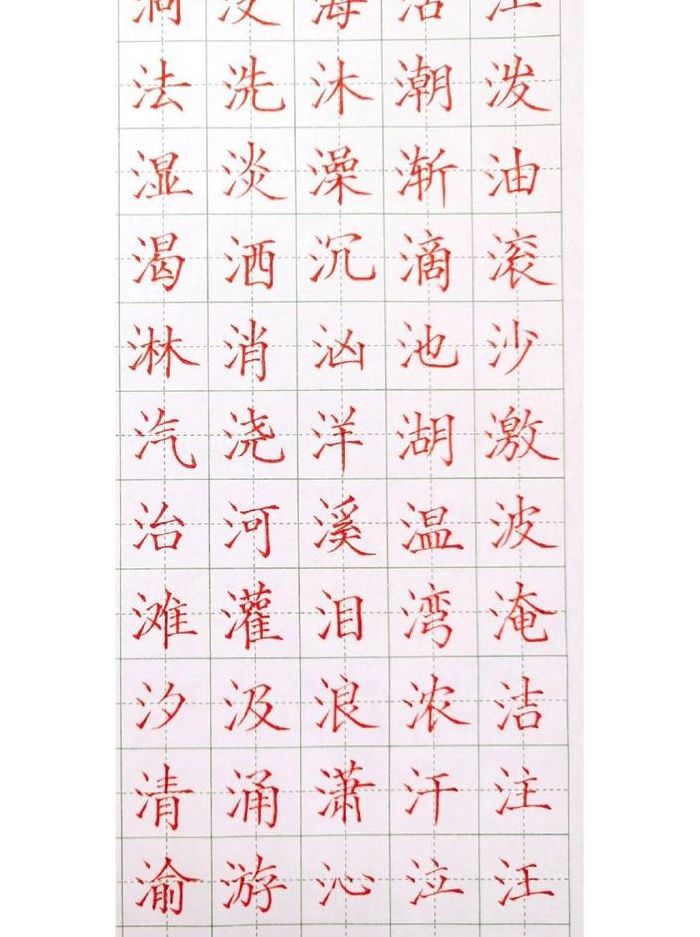 法洗沐潮泼
湿淡澡渐油
渴洒沉滴滚
淋消汹池沙
汽浇洋湖激
治河溪温波
滩灌泪湾淹
汐汲浪浓洁
清涌潇汗注
渝游沁泣汪